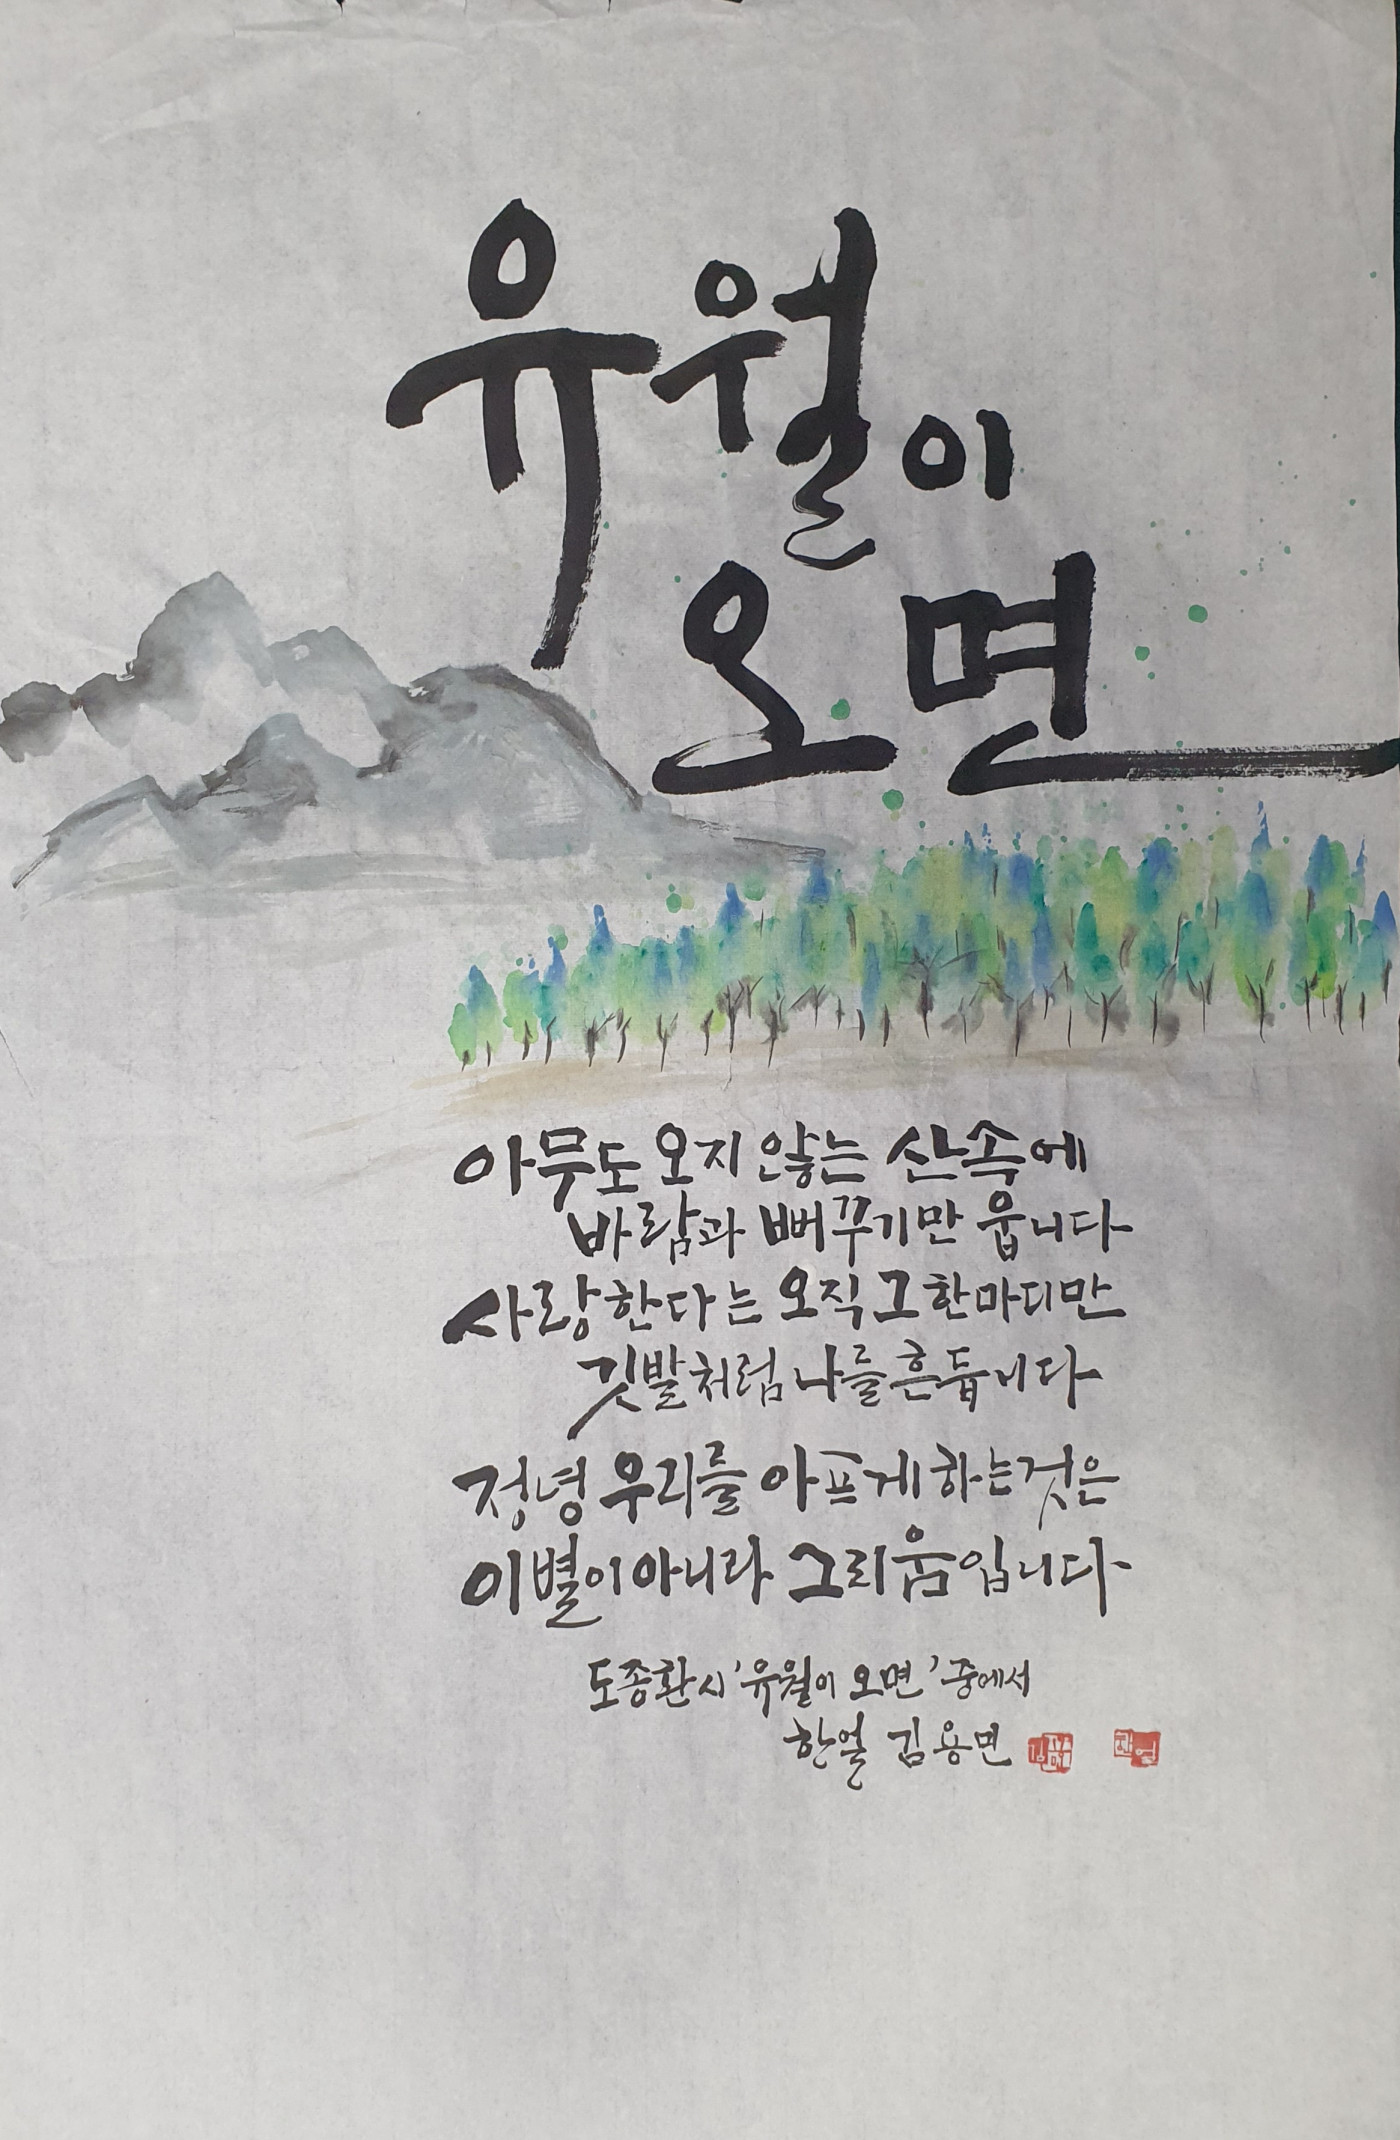 유월이
오면
아무도 오지 않는 산속에
바람과 뻐꾸기만 웁니다
사랑한다는 오직 그 한마디만
깃발처럼 나를 흔듭니다
정녕 우리를 아프게 하는 것은
이별이 아니라 그리움입니다
도종환 시 '유월이 오면' 중에서
한얼 김용면